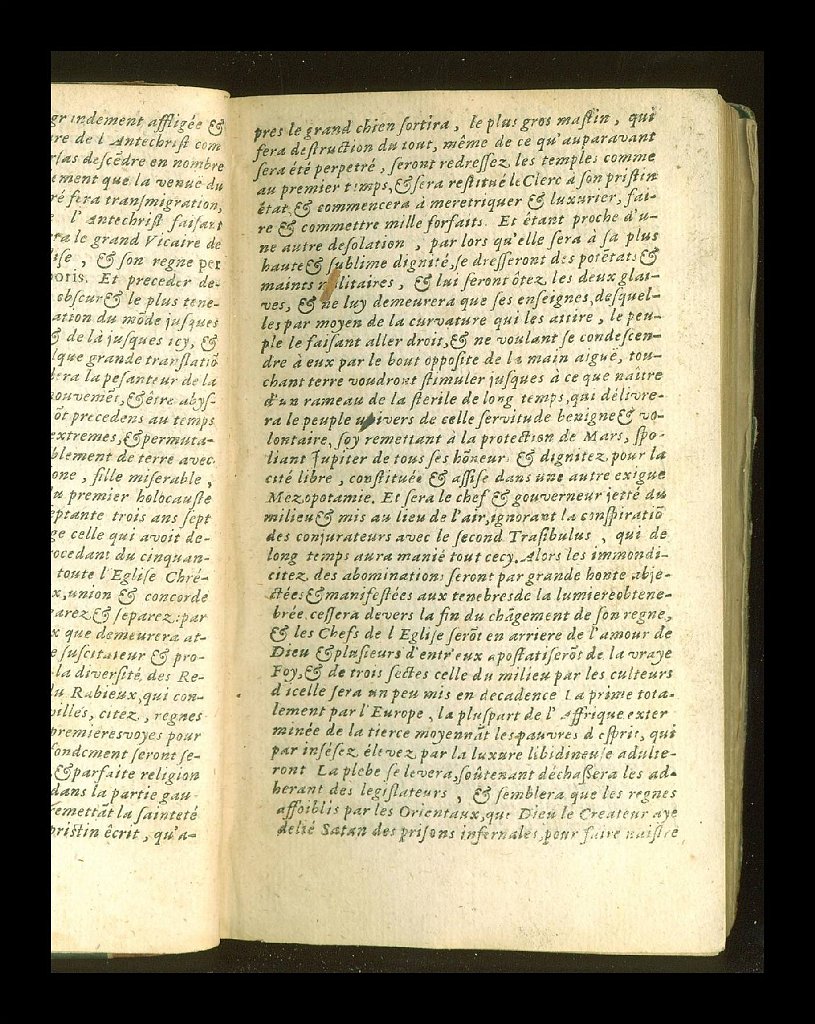 grandement affligée &
re de l'Antechrist com
ſas deſcẽdre en nombre
ement que la venue du
ré fera transmigration,
l'Antechriſt faiſant
ra le grand Vicaire de
iſe, & ſon regne per
poris. Et preceder de-
obſcur & le plus tene-
ation du mõde juſques
& de là juſques icy, &
lque grande tranſlatiõ
era la peſanteur de la
mouvemẽt, & être abyſ-
õt precedens au temps
extremes, & permuta-
blement de terre avec
one, fille miſerable,
u premier holocauſte
eptante trois ans ſept
ge celle qui avoit de-
rocedant du cinquan-
toute l'Egliſe Chré-
x, union & concorde
arez & ſeparez: par
x que demeurera at-
e ſuſcitateur & pro-
la diverſité des Re-
du Rabieux, qui con-
villes, citez, regnes
premieres voyes pour
fondement ſeront ſe-
& parfaite religion
dans la partie gau
remettãt la ſainteté
priſtin écrit, qu'a-
pres le grand chien ſortira, le plus gros maſtin, qui
fera deſtruction du tout, même de ce qu'auparavant
ſera été perpetré, ſeront redreſſez les temples comme
au premier temps, & ſera reſtitué le Clerc à ſon priſtin
état, & commencera à meretriquer & luxurier, fai-
re & commettre mille forfaits. Et étant proche d'u-
ne autre deſolation, par lors qu'elle ſera à ſa plus
haute & ſublime dignité, ſe dreſſeront des potẽtats &
maints militaires, & lui ſeront ôtez les deux glai-
ves, & ne luy demeurera que ſes enſeignes, deſquel-
les par moyen de la curvature qui les attire, le peu-
ple le faiſant aller droit, & ne voulant ſe condeſcen-
dre à eux par le bout oppoſite de la main aiguë, tou-
chant terre voudront ſtimuler juſques à ce que naître
d'un rameau de la ſterile de long temps, qui délivre-
ra le peuple univers de celle ſervitude benigne & vo-
lontaire, ſoy remettant à la protection de Mars, ſpo-
liant Jupiter de tous ſes hõneur & dignitez, pour la
cité libre, conſtituée & aſſiſe dans une autre exigue
Mezopotamie. Et ſera le chef & gouverneur jetté du
milieu & mis au lieu de l'air, ignorant la conſpiratiõ
des conjurateurs avec le ſecond Traſibulus, qui de
long temps aura manié tout cecy. Alors les immondi-
citez des abominations ſeront par grande honte abje-
ctées & manifeſtées aux tenebres de la lumiere obtene-
brée, ceſſera devers la fin du chãgement de ſon regne,
& les Chefs de l'Egliſe ſerõt en arriere de l'amour de
Dieu & pluſieurs d'entr'eux apoſtatiſerõt de la vraye
Foy, & de trois ſectes celle du milieu par les culteurs
d'icelle ſera un peu mis en decadence La prime tota-
lement par l'Europe, la pluſpart de l'Affrique exter
minée de la tierce moyennãt les pauvres d'eſprit, qui
par inſéſez élevez par la luxure libidineuſe adulte-
ront La plebe ſe levera, ſoûtenant déchaßera les ad-
herant des legiſlateurs, & ſemblera que les regnes
affoiblis par les Orientaux, que Dieu le Createur aye
delié Satan des priſons infernales, pour faire naiſtre